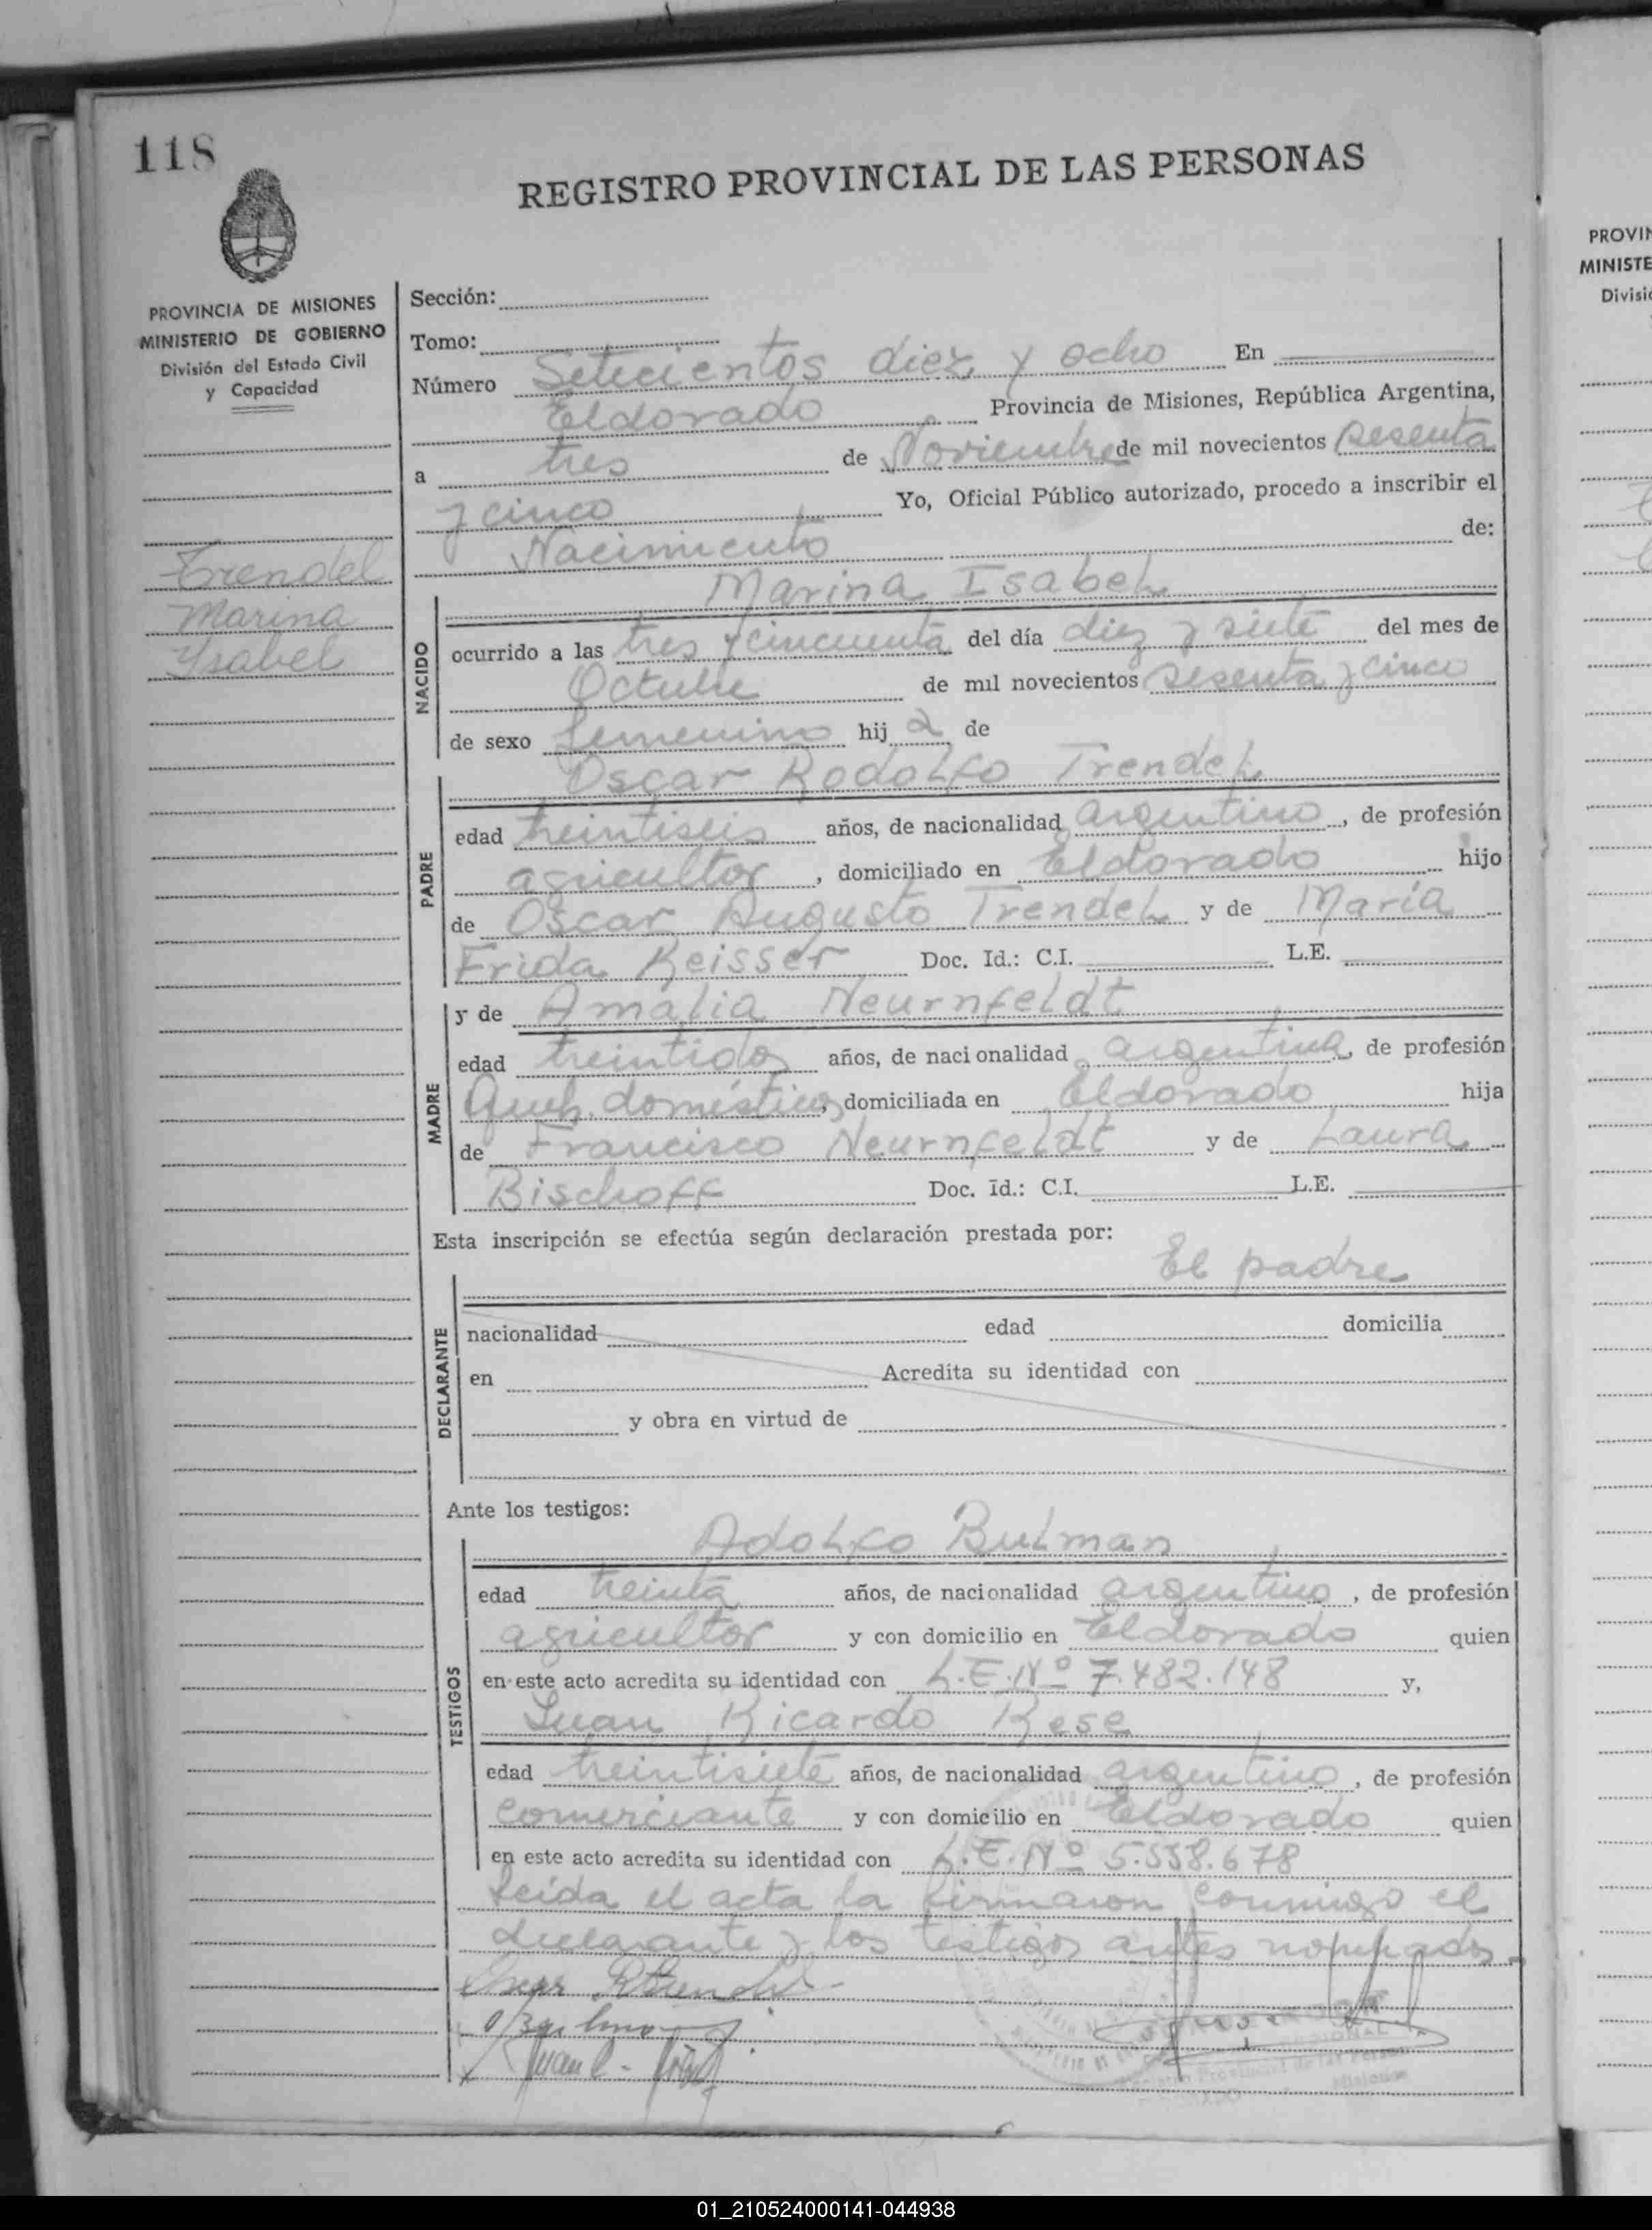 118
REGISTRO PROVINCIAL DE LAS PERSONAS
PROVINCIA DE MISIONES
MINISTERIO DE GOBIERNO
División del Estado Civil
y Capacidad
Trendel
Marina
Ysabel
Sección:
Tomo:
Número Setecientos diez y ocho En
Eldorado Provincia de Misiones, República Argentina,
a tres de Noviembre de mil novecientos sesenta
y cinco Yo, Oficial Público autorizado, procedo a inscribir el
Nacimiento de:
NACIDO
Marina Isabel
ocurrido a las tres y cincuenta del día diez y siete del mes de
Octubre de mil novecientos sesenta y cinco
de sexo femenino hij a de
PADRE
Oscar Rodolfo Trendel
edad treintiseis años, de nacionalidad argentino, de profesión
agricultor, domiciliado en Eldorado hijo
de Oscar Augusto Trendel y de María
Frida Reisser Doc. Id.: C.I. L.E.
MADRE
y de Amalia Neurnfeldt
edad treintidos años, de nacionalidad argentina, de profesión
Queh. domésticos, domiciliada en Eldorado hija
de Francisco Neurnfeldt y de Laura
Bischoff Doc. Id.: C.I. L.E.
Esta inscripción se efectúa según declaración prestada por:
El padre
DECLARANTE
nacionalidad edad domicilia
en Acredita su identidad con
y obra en virtud de
Ante los testigos:
TESTIGOS
Adolfo Bulman
edad treinta años, de nacionalidad argentino, de profesión
agricultor y con domicilio en Eldorado quien
en este acto acredita su identidad con L.E. Nº 7.482.148 y,
Juan Ricardo Rese
edad treintisiete años, de nacionalidad argentino, de profesión
comerciante y con domicilio en Eldorado quien
en este acto acredita su identidad con L.E. Nº 5.558.678
Leída el acta la firmaron conmigo el
declarante y los testigos antes nombrados.
PROVIN
MINISTE
Divisi
01_210524000141-044938